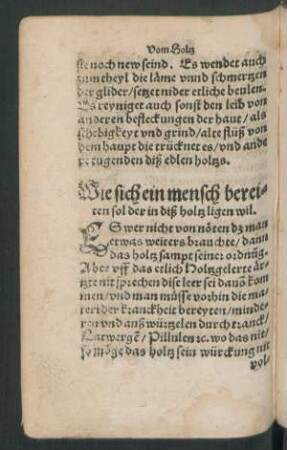 Vom Holtz
sie noch new seind. Es wendet auch
zum theyl die läme vnnd schmertzen
der glider / setzet nider etliche beulen.
Es reyniget auch sonst den leib von
anderen befleckungen der haut / als
schebigkeyt vnd grind / alte flüß von
dem haupt die trücknet es / vnd ande
re tugenden diß edlen holtzs.
Wie sich ein mensch berei-
ten sol der in diß holtz ligen wil.
ES wer nicht von nöten dz man
etwas weiters brauchte / dann
das holtz sampt seiner ordnūg.
Aber vff das etlich Holtzgelerte ärtz-
te nit sprechen dise leer sei dauō kom
men / vnd man müsse vorhin die ma-
teri der kranckheit bereyten / minde-
ren vnd außwürtzelen durch tranck /
Latwergē / Pillulen ꝛc. wo das nit /
so möge das holtz sein würckung nit
vol-